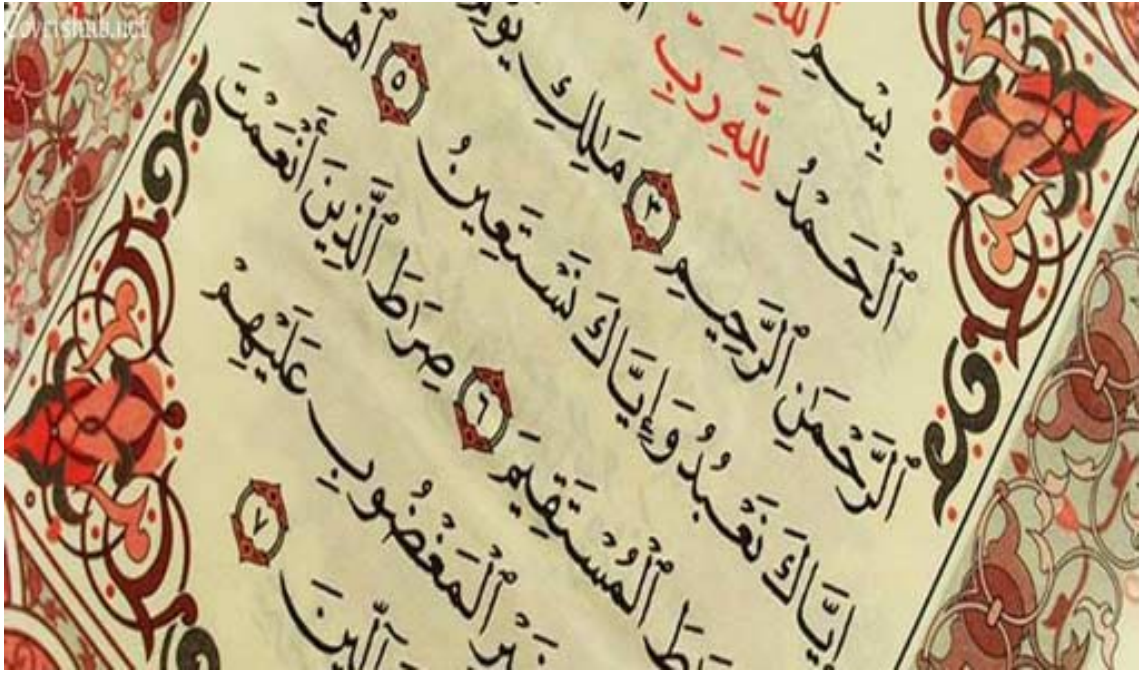 بِسْمِ ٱللَّهِ
ٱلْحَمْدُ لِلَّهِ رَبِّ
ٱلرَّحْمَٰنِ ٱلرَّحِيمِ ٣ مَٰلِكِ يَوْمِ
إِيَّاكَ نَعْبُدُ وَإِيَّاكَ نَسْتَعِينُ ٥
ٱلْمُسْتَقِيمَ ٦ صِرَٰطَ ٱلَّذِينَ أَنْعَمْتَ
غَيْرِ ٱلْمَغْضُوبِ عَلَيْهِمْ
٧